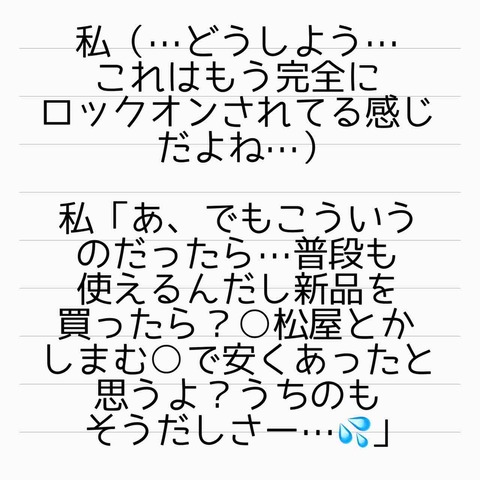 私（…どうしよう…
これはもう完全に
ロックオンされてる感じ
だよね…）
私「あ、でもこういう
のだったら…普段も
使えるんだし新品を
買ったら？○松屋とか
しまむ○で安くあったと
思うよ？うちのも
そうだしさー…💦」